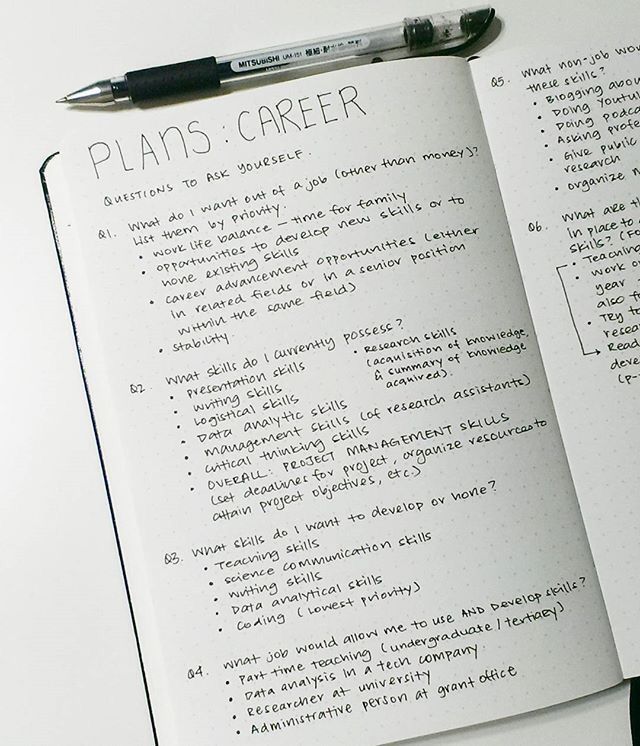 MITSUBISHI UM-151
PLANS : CAREER
QUESTIONS TO ASK YOURSELF:
Q1. What do I want out of a job (other than money)?
List them by priority.
• work life balance – time for family
• opportunities to develop new skills or to
hone existing skills
• career advancement opportunities (either
in related fields or in a senior position
within the same field)
• stability.
Q2. What skills do I currently possess?
• presentation skills
• writing skills
• Logistical skills
• Data analytic skills
• management skills (of research assistants)
• critical thinking skills
• OVERALL: PROJECT MANAGEMENT SKILLS
(set deadlines for project, organize resources to
attain project objectives, etc.)
• Research skills
(acquisition of knowledge,
& summary of knowledge
acquired).
Q3. What skills do I want to develop or hone?
• Teaching skills
• science communication skills
• writing skills
• Data analytical skills
• Coding (lowest priority)
Q4. What job would allow me to use AND Develop skills?
• Part time Teaching (undergraduate / tertiary)
• Data analysis in a tech company.
• Researcher at university
• Administrative person at grant office
Q5. What non-job wou
these skills?
• Blogging abou
• Doing Youtu
• Doing podca
• Asking profe
• Give public
research
• organize
Q6. What are th
in place to
skills? (Fo
• Teaching
work o
year
also f
• Try to
resea
• Read
deve
(p-